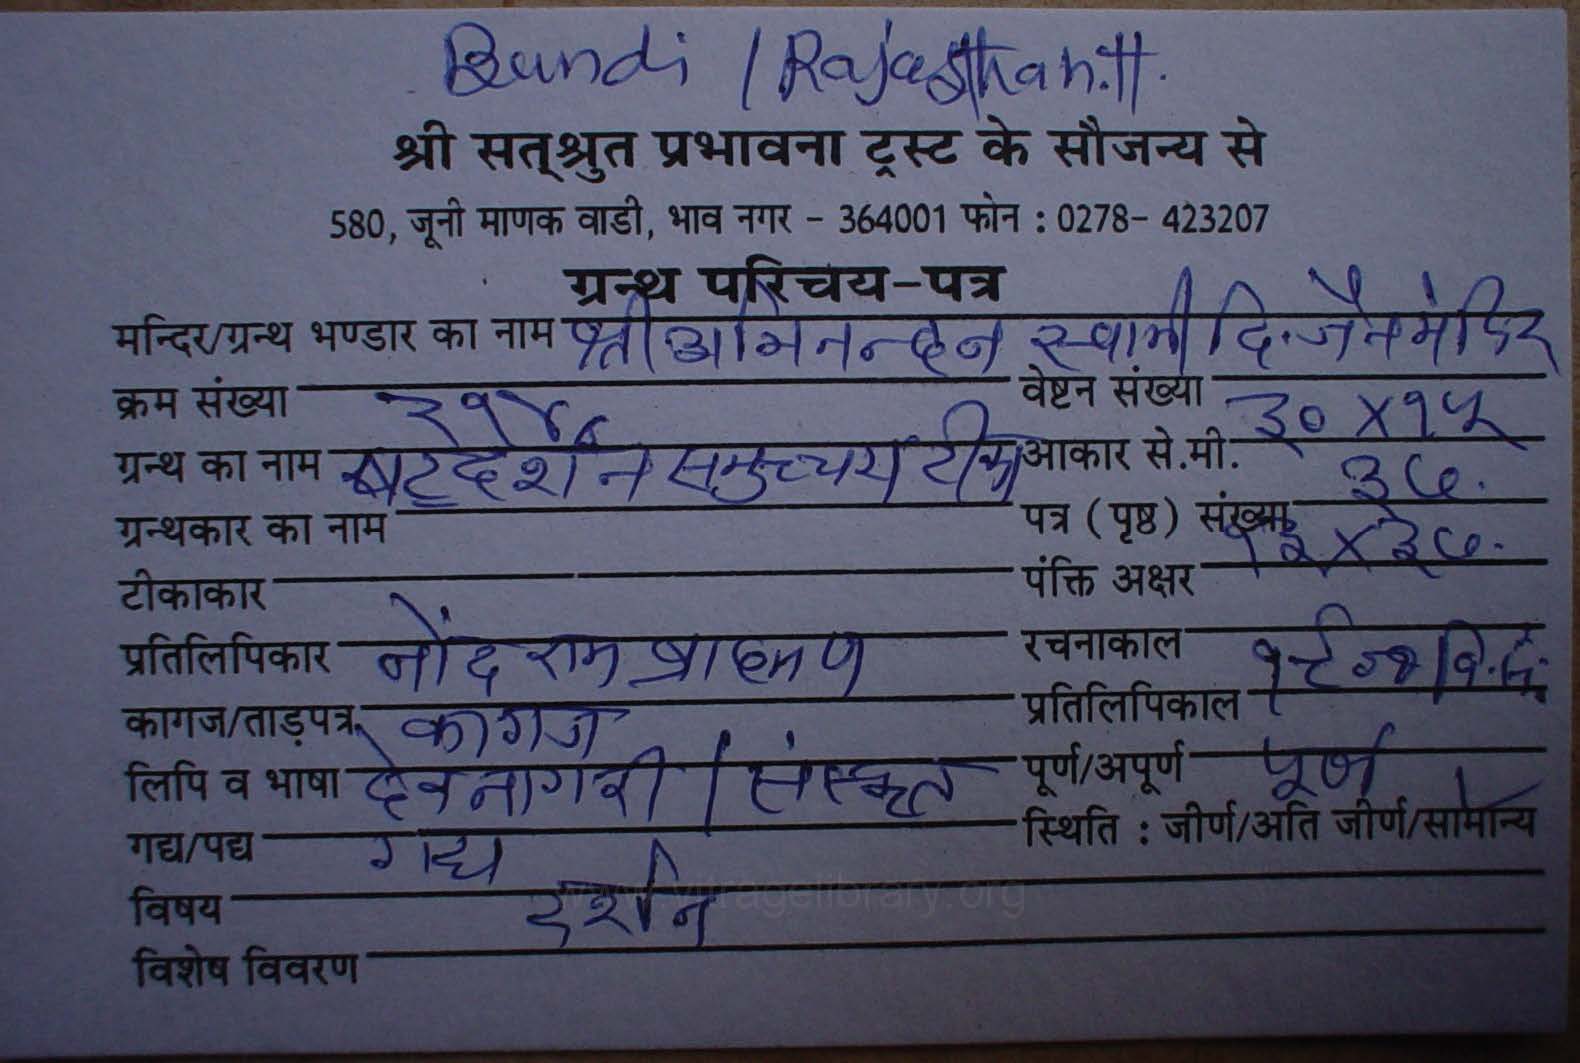 Bundi / Rajasthan.
श्री सत्श्रुत प्रभावना ट्रस्ट के सौजन्य से
580, जूनी माणक वाडी, भाव नगर - 364001 फोन : 0278- 423207
ग्रन्थ परिचय-पत्र
मन्दिर/ग्रन्थ भण्डार का नाम श्री अभिनन्दन स्वामी दि. जैन मंदिर
क्रम संख्या २१४ वेष्टन संख्या
ग्रन्थ का नाम षट्दर्शन समुच्चय टीका आकार से.मी. ३० X १५
ग्रन्थकार का नाम पत्र (पृष्ठ) संख्या ३७.
टीकाकार पंक्ति अक्षर १३ X ३७.
प्रतिलिपिकार नोंद राम ब्राह्मण रचनाकाल
कागज/ताड़पत्र कागज प्रतिलिपिकाल
लिपि व भाषा देवनागरी / संस्कृत पूर्ण/अपूर्ण पूर्ण
गद्य/पद्य गद्य स्थिति : जीर्ण/अति जीर्ण/सामान्य
विषय दर्शन
विशेष विवरण
www.vitragelibrary.org